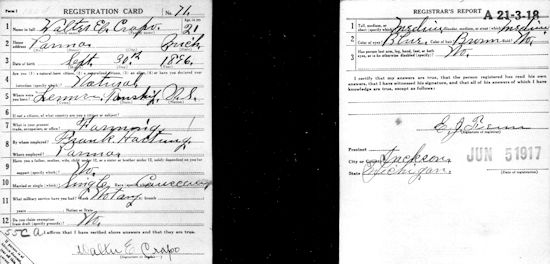 Form 1
REGISTRATION CARD No. 74
1 Name in full Walter E. Crapo Age, in yrs. 21
2 Home address Parma Mich
3 Date of birth Sept 30th 1896
4 Are you (1) a natural-born citizen, (2) a naturalized citizen, (3) an alien, (4) or have you declared your
intention (specify which)? Natural
5 Where were you born? U.S.
6 If not a citizen, of what country are you a citizen or subject?
7 What is your present trade, occupation, or office? Farming
8 By whom employed? Frank
Where employed? Parma
9 Have you a father, mother, wife, child under 12, or a sister or brother under 12, solely dependent on you for
support (specify which)? No
10 Married or single (which)? Single Race (specify which)? Caucasian
11 What military service have you had? Rank branch
years Nation or State
12 Do you claim exemption from draft (specify grounds)? No.
I affirm that I have verified above answers and that they are true.
Walter E. Crapo
REGISTRAR'S REPORT A 21-3-18
1 Tall, medium, or short (specify which)? Medium Slender, medium, or stout (which)? Medium
2 Color of eyes? Blue Color of hair? Brown Bald? No.
3 Has person lost arm, leg, hand, foot, or both eyes, or is he otherwise disabled (specify)? No.
I certify that my answers are true, that the person registered has read his own
answers, that I have witnessed his signature, and that all of his answers of which I have
knowledge are true, except as follows:
(Signature of registrar)
Precinct
City or County Jackson
State Michigan.
JUN 5 1917
(Date of registration)